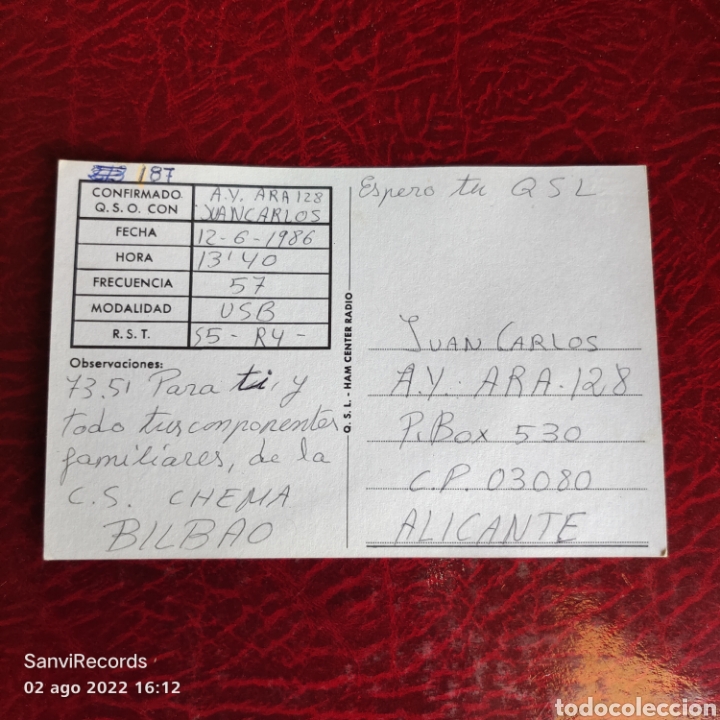 187
CONFIRMADO Q.S.O. CON A.Y. ARA 128 JUAN CARLOS
FECHA 12-6-1986
HORA 13'40
FRECUENCIA 57
MODALIDAD USB
R.S.T. S5 - R4 -
Observaciones:
73.51 Para ti, y
todo tus componentes
familiares, de la
C.S. CHEMA
BILBAO
Q.S.L. - HAM CENTER RADIO
Espero tu QSL
JUAN CARLOS
A.Y. ARA-128
P. Box 530
C.P. 03080
ALICANTE
SanviRecords
02 ago 2022 16:12
todocoleccion